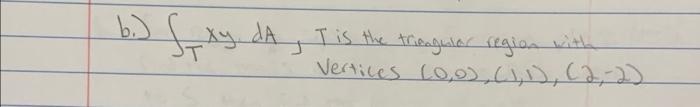 b.) ∫_T xy dA, T is the triangular region with
Vertices (0,0), (1,1), (2,-2)